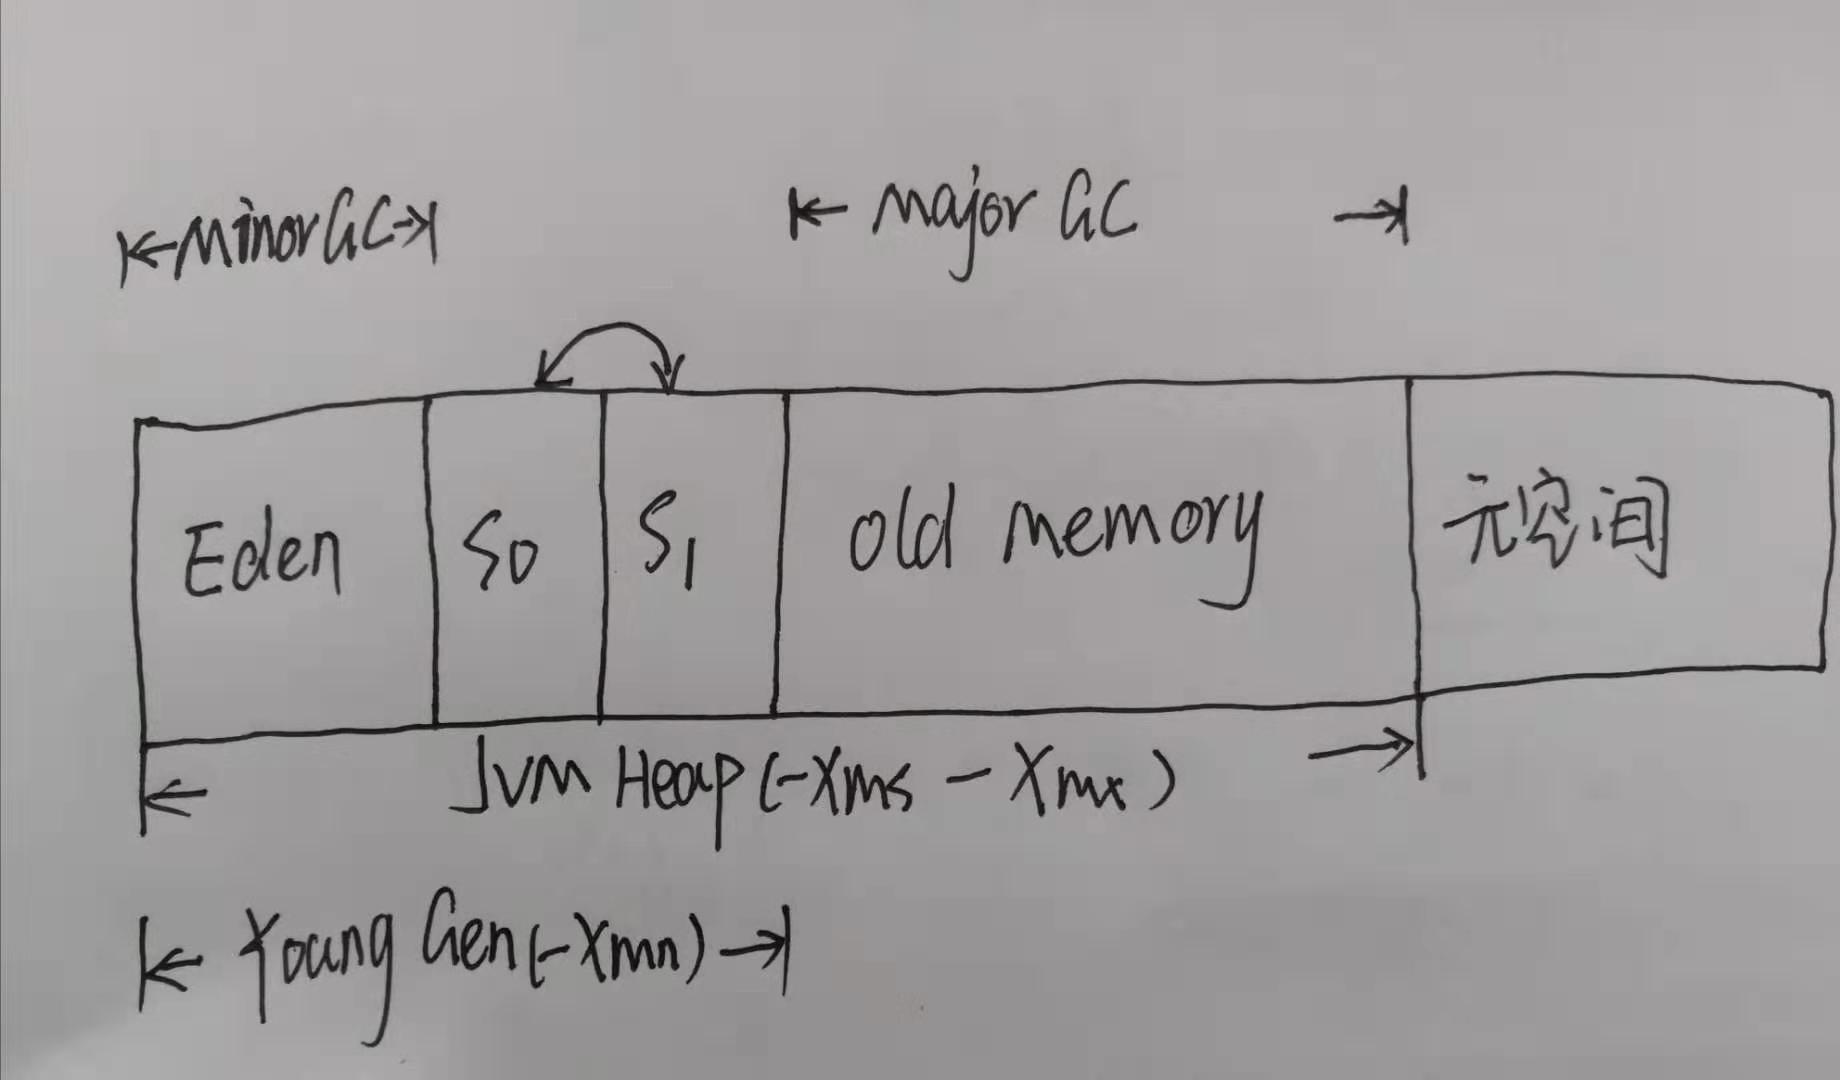 Minor GC
Major GC
Eden
S0
S1
old memory
元空间
JVM Heap (-Xms - Xmx)
Young Gen (-Xmn)